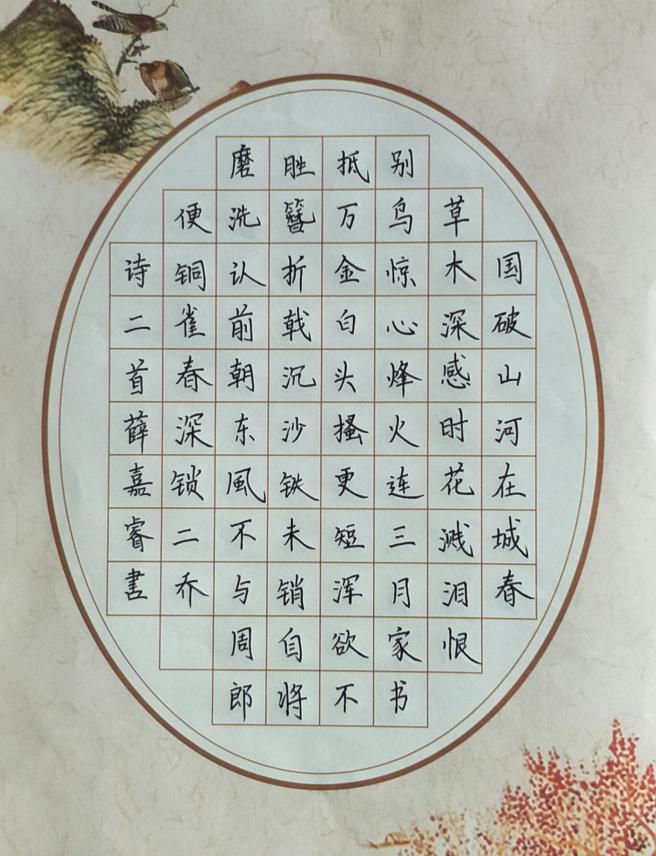 国破山河在城春
草木深感时花溅泪恨
别鸟惊心烽火连三月家书
抵万金白头搔更短浑欲不
胜簪折戟沉沙铁未销自将
磨洗认前朝东風不与周郎
便铜雀春深锁二乔
诗二首薛嘉睿书